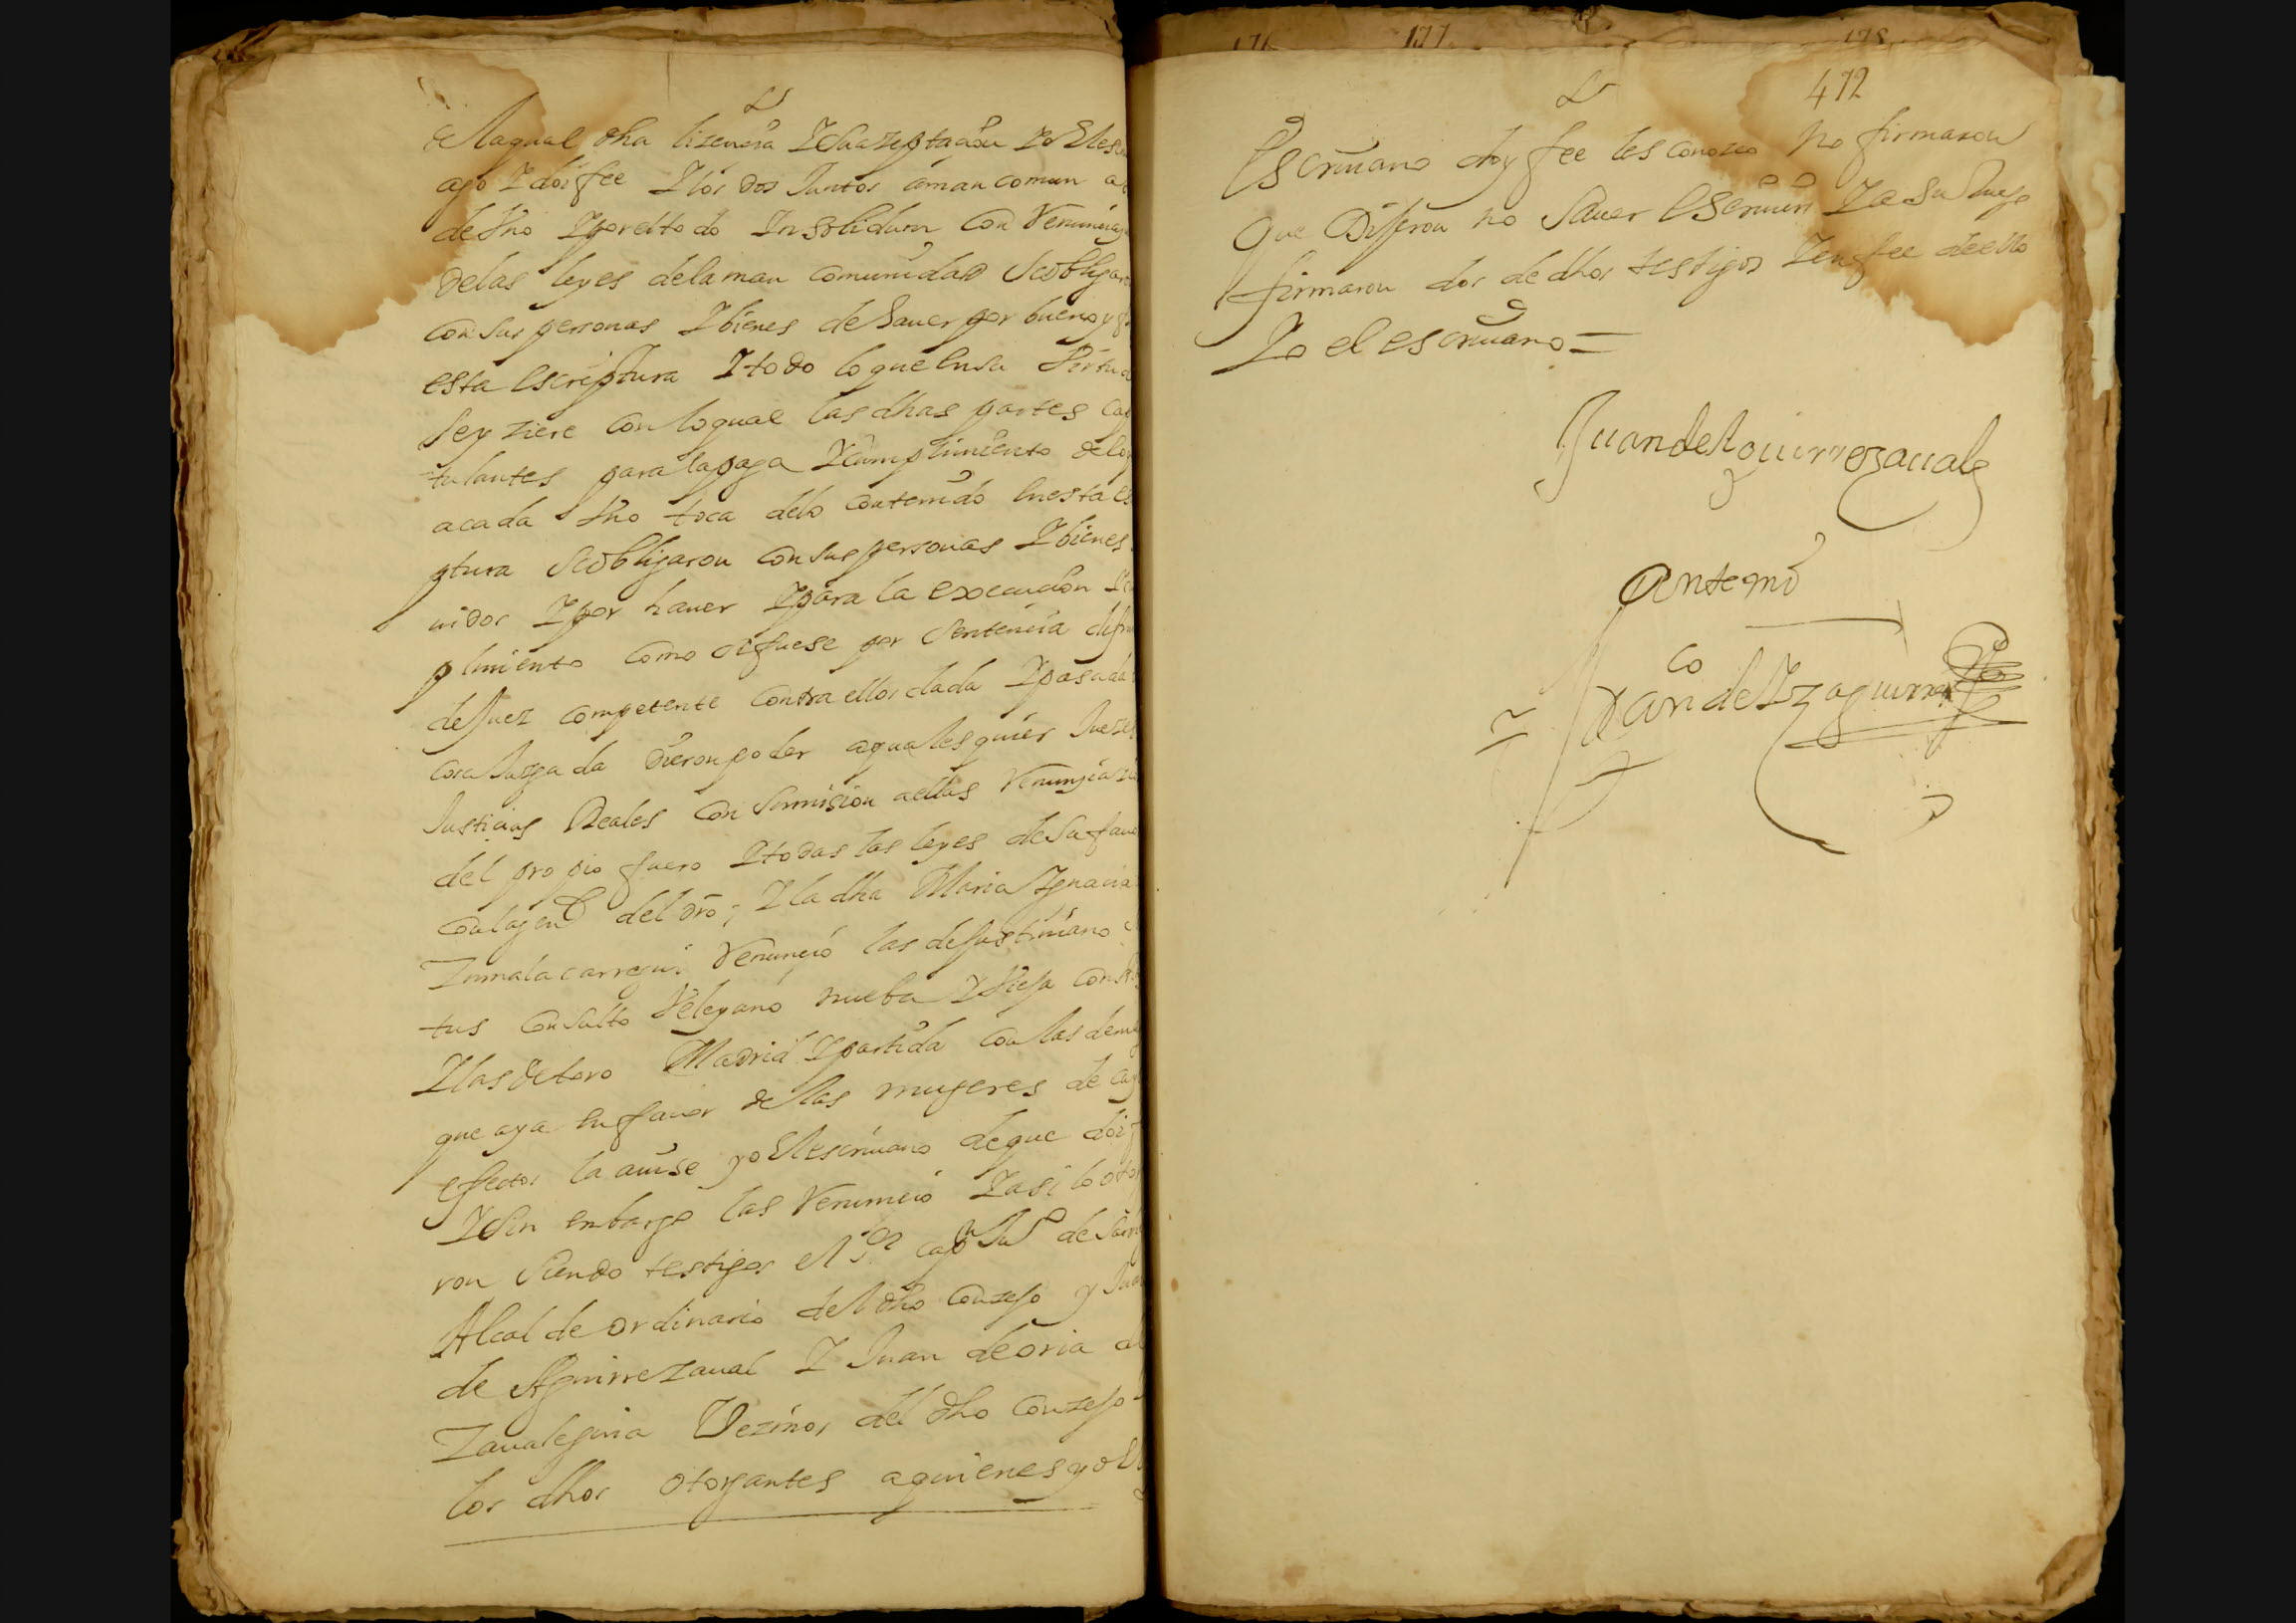 de laqual dha lizencia I de
ago I doi fee I los dos Juntos aman comun a
de Vno I por el todo Insolidum con Renunciaz
de las leyes de la man comunidad Se obligar
con sus personas I bienes de hauer por bueno y
esta escriptura I todo lo que en su Virtud
Se yziere con loqual las dhas partes ca
tulantes para la paga I cumplimiento de lo
acada Vno toca dello contenido en esta es
ptura Se obligaron con sus personas I bienes
uidos I por hauer I para la execucion I
plimiento como si fuese por Sentencia difin
de Juez competente contra ellos dada I pasada
cosa Juzgada dieron poder a qualesquier Juezes
Justicias Reales con Sumision a ellas Renunciaz
del propio fuero I todas las leyes de su fauor
con la gen^l del dro; I la dha Maria Ygnacia
Zumalacarregui Renuncio las de Justiniano
tus consulto Veleyano nueba I Vieja const
I las de toro Madrid I partida con las dem
que aya en fauor de las mugeres de cuy
efectos la auise yo el escriuano de que doi
I sin enbargo las Renuncio I asi lo oto
ron siendo testigos el S.^or cap^n de
Alcalde ordinario del dho Conzejo y Juan
de Aguirrezaual I Juan de oria
Zaualeguia Vezinos del dho Conzejo
los dhos otorgantes a quienes yo el
176 177 178
472
Escriuano doy fee les conozco no firmaron
que dijeron no Sauer escriuir I a su Ruego
firmaron dos de dhos testigos I en fee de ello
Io el escriuano =
Juan de Aguirrezaual
Ante mi
Fran^co de Yzaguirre